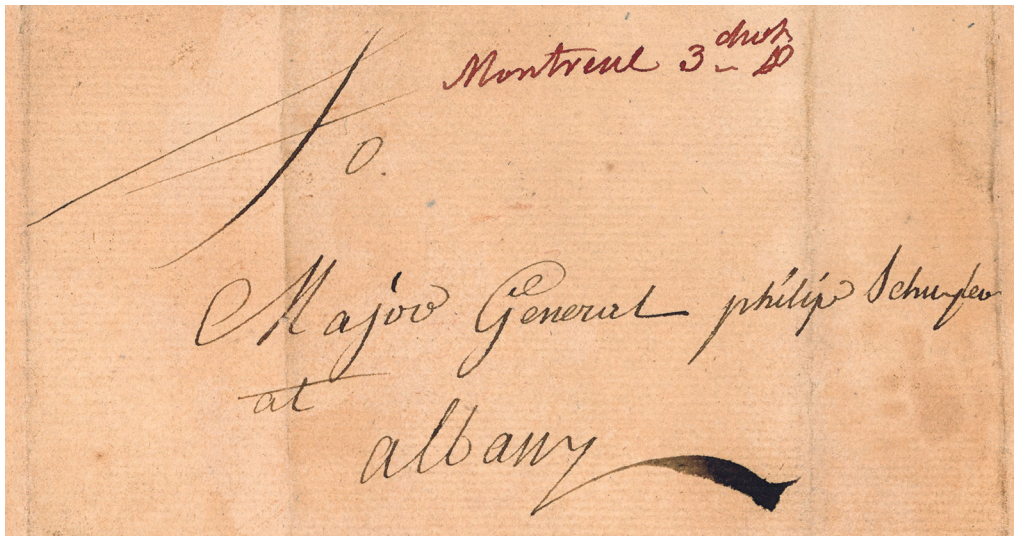 Montreal 3 dwt
To
Major General philip Schuyler
at
albany